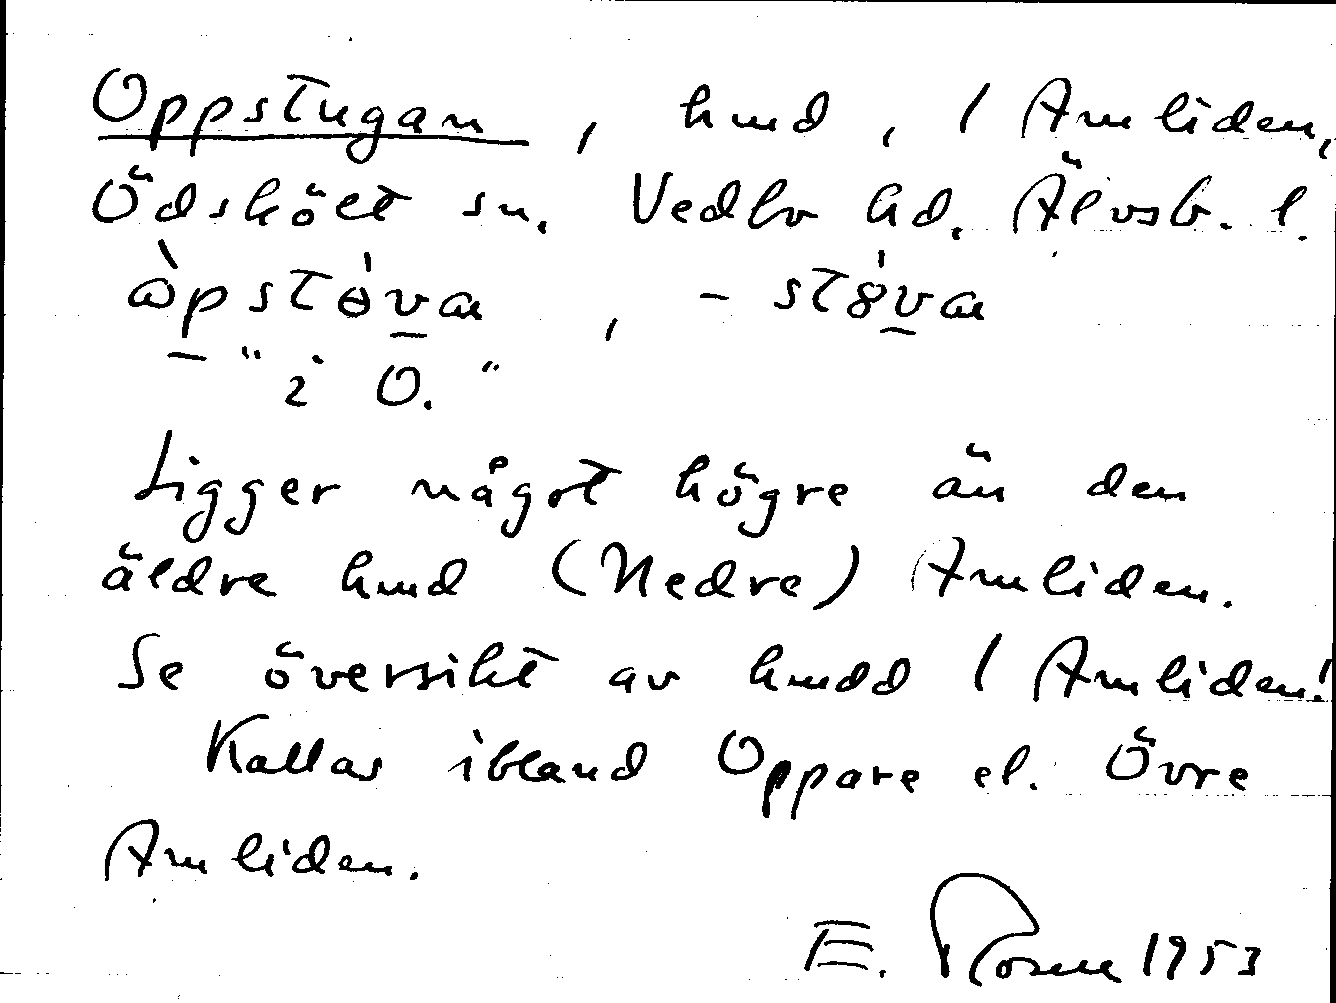 Oppstugan, hmd, 1 Amliden,
Ödskölt sn. Vedbo hd. Älvsb. l.
òpstɵ̀va, -stȣ̀va
"i O."
Ligger något högre än den
äldre hmd (Nedre) Amliden.
Se översikt av hmdd 1 Amliden!
Kallas ibland Oppare el. Övre
Amliden.
E. Rosell 1953